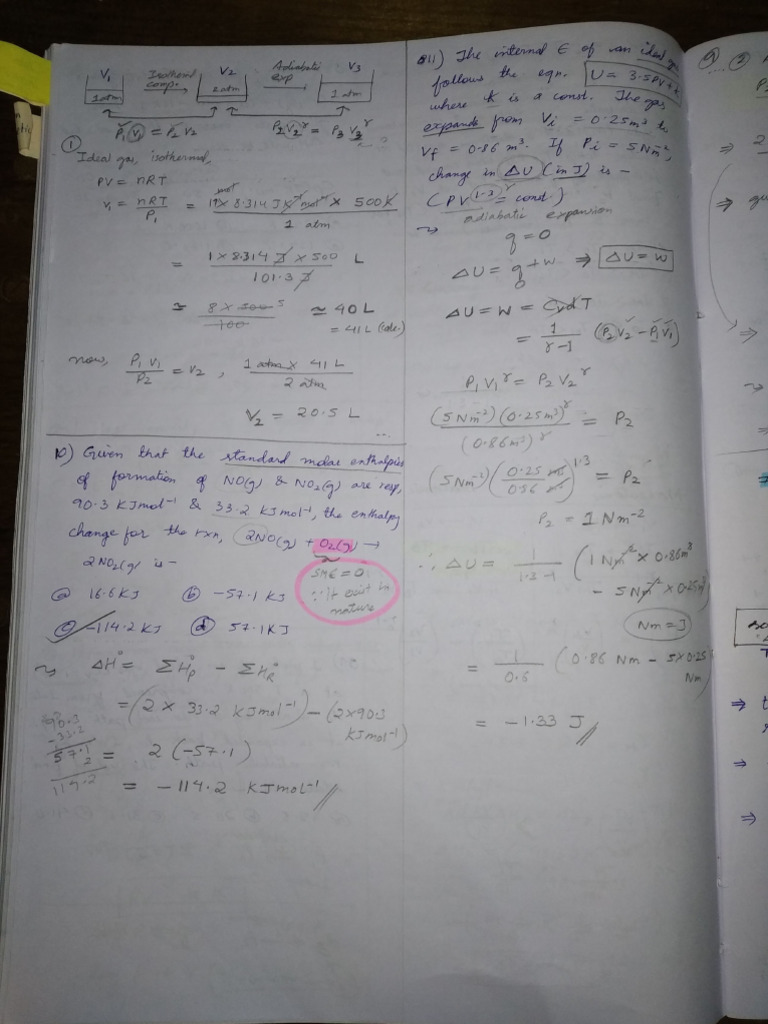 V₁ Isothermal comp. V₂ Adiabatic exp V₃
1 atm 2 atm 1 atm
P₁V₁ = P₂V₂ P₂V₂^γ = P₃V₃^γ
① Ideal gas, isothermal,
PV = nRT
V₁ = nRT/P₁ = 1 mol × 8.314 JK⁻¹ mol⁻¹ × 500K / 1 atm
= 1 × 8.314 J × 500 / 101.3 J L
≈ 8 × 500 5 / 100 ≈ 40 L
= 41 L (calc.)
now, P₁V₁/P₂ = V₂ , 1 atm × 41 L / 2 atm
V₂ = 20.5 L
10) Given that the standard molar enthalpies
of formation of NO(g) & NO₂(g) are resp,
90.3 KJmol⁻¹ & 33.2 KJmol⁻¹, the enthalpy
change for the rxn, 2NO(g) + O₂(g) →
2NO₂(g) is -
ⓐ 16.6 KJ ⓑ -57.1 KJ
ⓒ -114.2 KJ ⓓ 57.1 KJ
= 0
∵ It exist in
nature
~> ΔH° = ΣH°P - ΣH°R
= (2 × 33.2 KJmol⁻¹) - (2×90.3
KJmol⁻¹)
90.3
-33.2
57.1
2
= 2 (-57.1)
= -114.2 KJmol⁻¹
Q11) The internal E of an ideal gas
follows the eqn. U = 3.5PV + k
where K is a const. The gas
expands from Vi = 0.25m³ to
Vf = 0.86 m³. If Pi = 5Nm⁻²,
change in ΔU (in J) is -
(PV^1.3 = const)
adiabatic expansion
~> q = 0
ΔU = q + w ⇒ ΔU = W
ΔU = W = CvdT
= 1/γ-1 (P₂V₂ - P₁V₁)
P₁V₁^γ = P₂V₂^γ
(5Nm⁻²)(0.25m³)^γ / (0.86m³)^γ = P₂
(5Nm⁻²)(0.25 m³/0.86 m³)^1.3 = P₂
P₂ = 1 Nm⁻²
∴ ΔU = 1/1.3-1 (1 Nm⁻² × 0.86m³
- 5Nm⁻² × 0.25m³)
Nm = J
= 1/0.6 (0.86 Nm - 5×0.25
Nm)
= -1.33 J